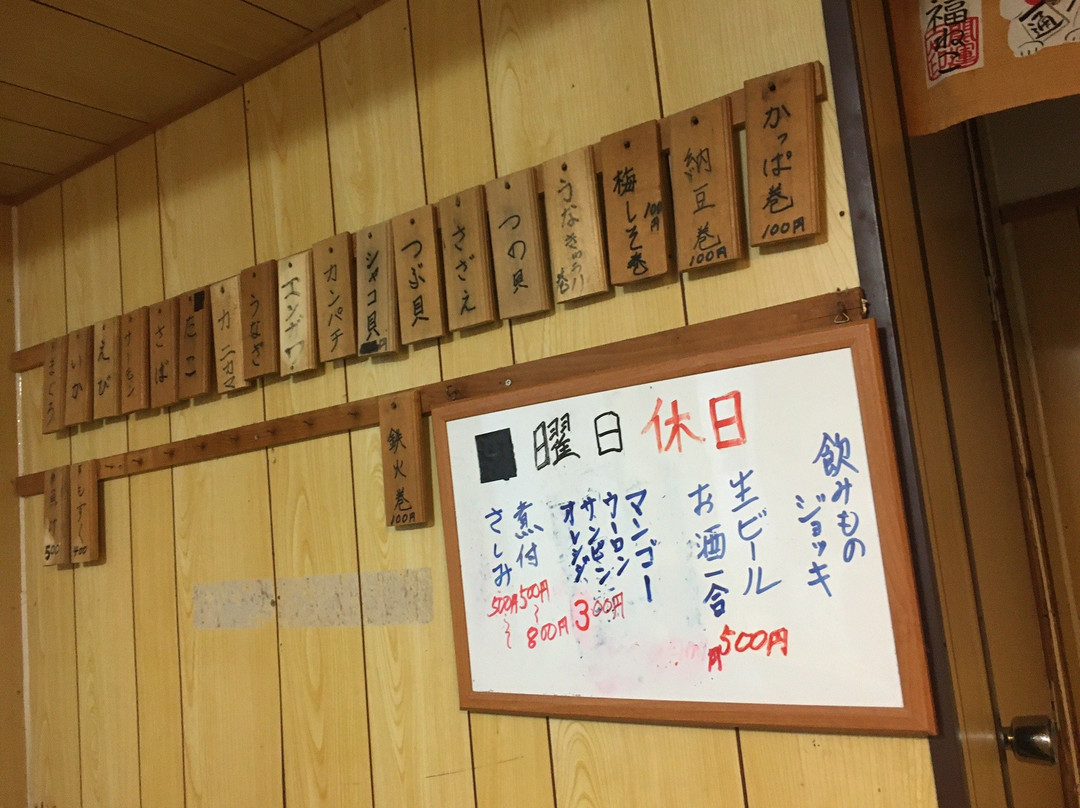 福ねこ
開運
通
かっぱ巻
100円
納豆巻
100円
梅しそ巻
100円
うなきゅうり巻
つの貝
さざえ
つぶ貝
シャコ貝
カンパチ
エンガワ
うなぎ
カニカマ
たこ
さば
サーモン
えび
いか
まぐろ
鉄火巻
100円
もずく
400
500
曜日 休日
飲みもの
ジョッキ
生ビール
お酒一合
500円
円
マンゴー
ウーロン
サンピン
オレンジ
300円
煮付
500円
~
800円
さしみ
500円
~